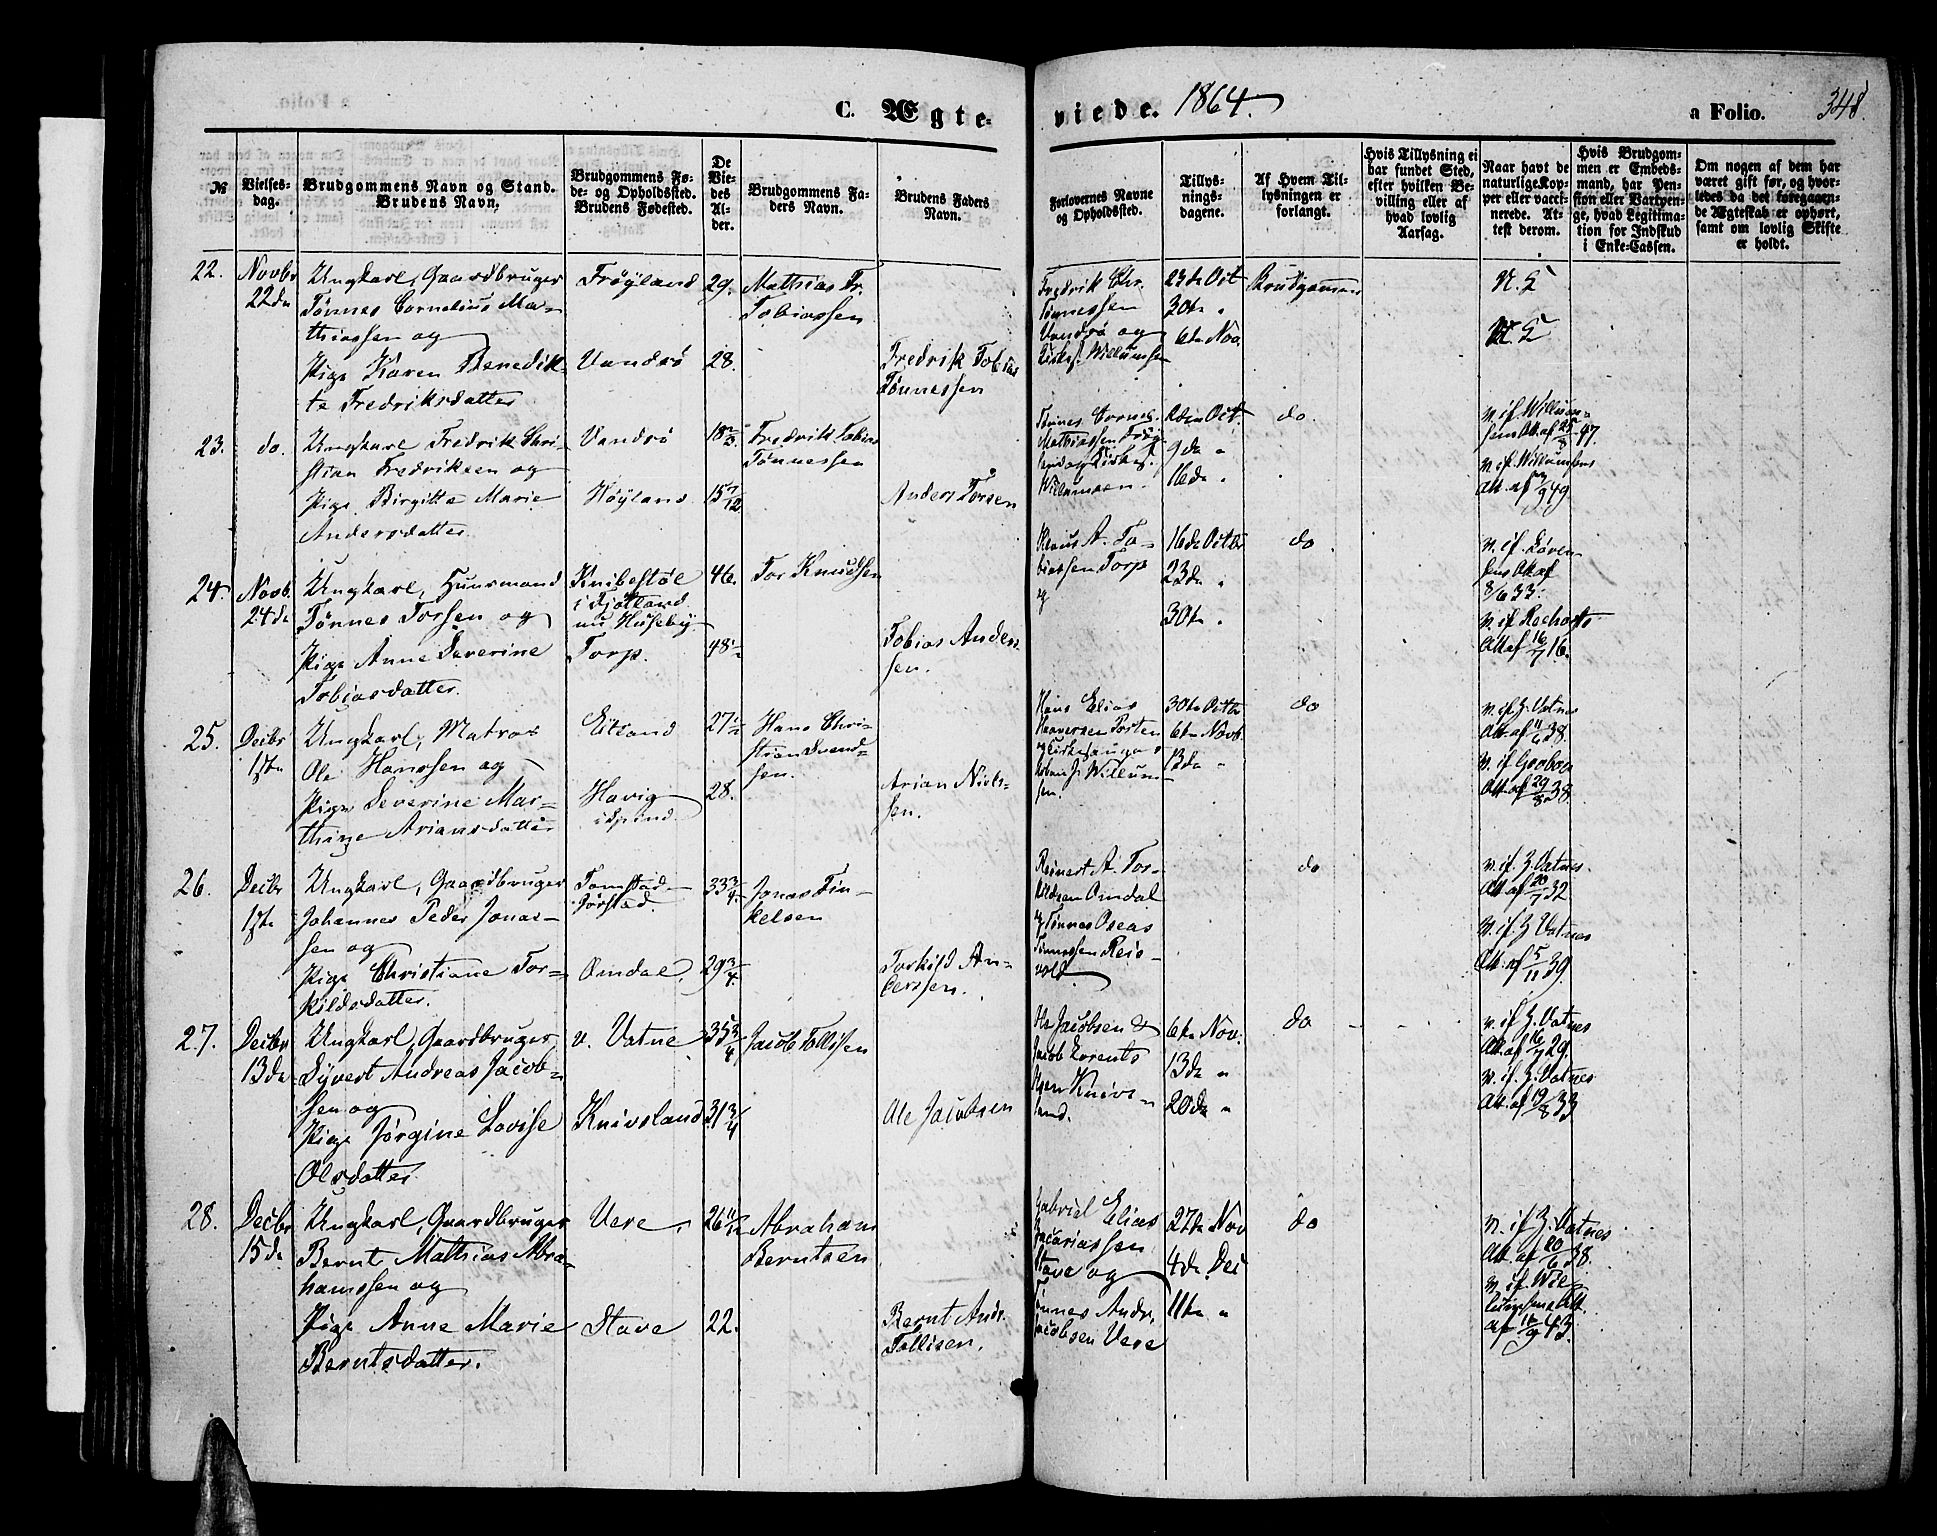 C. Ægte-
viede. 1864.
a Folio. 348.
№
Vielses-
dag.
Brudgommens Navn og Stand.
Brudens Navn.
Brudgommens Fø-
de- og Opholdssted.
Brudens Fødested.
De
Vie-
des
Al-
der.
Brudgommens Fa-
ders Navn.
Brudens Faders
Navn.
Forlovernes Navne
og Opholdssted.
Tillys-
nings-
dagene.
Af Hvem Til-
lysningen er
forlangt.
Hvis Tillysning ei
har fundet Sted,
efter hvilken Be-
villing eller af
hvad lovlig
Aarsag.
Naar havt de
naturlige Kop-
per eller vacci-
nerede. At-
test derom.
Hvis Brudgom-
men er Embeds-
mand, har Pen-
sion eller Vartpen-
ge, hvad Legitima-
tion for Indskud
i Enke-Cassen.
Om nogen af dem har
været gift før, og hvor-
ledes da det foregaaen-
de Ægteskab er ophørt,
samt om lovlig Skifte
er holdt.
22.
Novbr
22de
Ungkarl, Gaardbruger
Tønnes Cornelius Mat-
thiassen og
Pige Karen Benedik-
te Fredriksdatter
Frøyland
Vandrø
29.
28.
Mathias Fr.
Tobiassen
Fredrik Tobias
Tønnessen
Fredrik Chr.
Tønnessen
Vandrø og
Kirkes. Willumsen
23de Oct
30te "
6te Nov.
Brudgommen
23.
do.
Ungkarl Fredrik Chri-
stian Fredriksen og
Pige Birgitte Marie
Andersdatter
Vandrø
Høyland
Fredrik Tobias
Tønnessen
Anders Torsen
Tønnes Cornel.
Mathiassen Frøy-
land og Kirkes.
Willumsen.
2den Oct.
9de "
16de "
do.
v. if. Willum-
sens Att. af 25/8 47.
v. if. Willumsens
Att. af
24.
Novb.
24de
Ungkarl, Huusmand
Tønnes Torsen og
Pige Anne Severine
Tobiasdatter
Knibestøl
i Fjotland
nu Huseby
Torp.
46.
48
Tor Knudsen
Tobias Anders-
sen.
Klaus A. To-
biassen Torp
og
16de Octbr
23de "
30te "
do
v. if. Løven-
sens Att af
8/6 33.
v. if. Rochorts
Att af 16/7 16.
25.
Decbr
1ste
Ungkarl, Matros
Ole Hanssen og
Pige Severine Mar-
thine Ariansdatter
Eitland
Havig
i Spind
27½
28.
Hans Chri-
stian Svend-
sen.
Arian Niels-
sen.
Hans Elias
30te Octbr
6te Novb.
13de "
do
v. if. Z. Vatnes
Att af 11/6 38.
Att. af 29/8 38.
26.
Decbr
1ste
Ungkarl, Gaardbruger
Johannes Peder Jonas-
sen og
Pige Christiane Tor-
kildsdatter.
Tomstad
Jørstad.
Omdal
33 3/4
29 3/4
Jonas Tin-
kelsen
Torkild An-
derssen.
Reinert A. Tor-
kildsen Omdal
og Tønnes Oseas
Tønnessen Reis-
vold
do
v. if. Z. Vatnes
Att af 20/7 32
v. if. Z. Vatnes
Att. af 5/11 39.
27.
Decbr
13de
Ungkarl, Gaardbruger
Syvert Andreas Jacob-
sen og
Pige Jørgine Lovise
Olsdatter
v. Vatne
Knivsland
35 3/4
31 3/4
Jacob Tollissen
Ole Jacobsen
Ole Jacobsen &
Jacob Lorents
Olsen Knivs-
land.
6te Nov.
13de "
20de "
do
v. if. Z. Vatnes
Att. af 16/7 29.
v. if. Z. Vatnes
Att. af 19/8 33
28.
Decbr
15de
Ungkarl, Gaardbruger
Bernt Mathias Abra-
hamssen og
Pige Anne Marie
Berntsdatter.
Vere
Stave
26 11/12
22.
Abraham
Berntsen
Bernt Andr.
Tollisen.
Gabriel Elias
Zacariassen
Stave og
Tønnes Andr.
Jacobsen Vere
27de Nov
4de Dec
11te "
do
v. if. Z. Vatnes
Att. af 20/6 38.